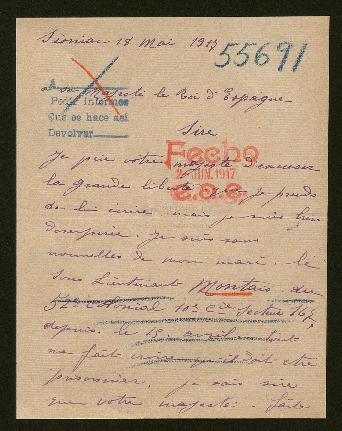 18 Mai 1917
55691
A
a sa Majesté le Roi d'Espagne
Pedir informes
Que se hace así
Devolver
Sire
Je prie votre majesté d'excuser
Fecho
2 JUN. 1917
la grande liberté que je prends
de lui écrire mais je suis bien
désespérée. Je suis sans
nouvelles de mon mari. le
sous Lieutenant Montais. du
52e colonial 10e Cie Secteur 167,
depuis le 15 avril tout
me fait croire qu'il doit etre
prisonnier. je sais sire
que votre majesté. fait